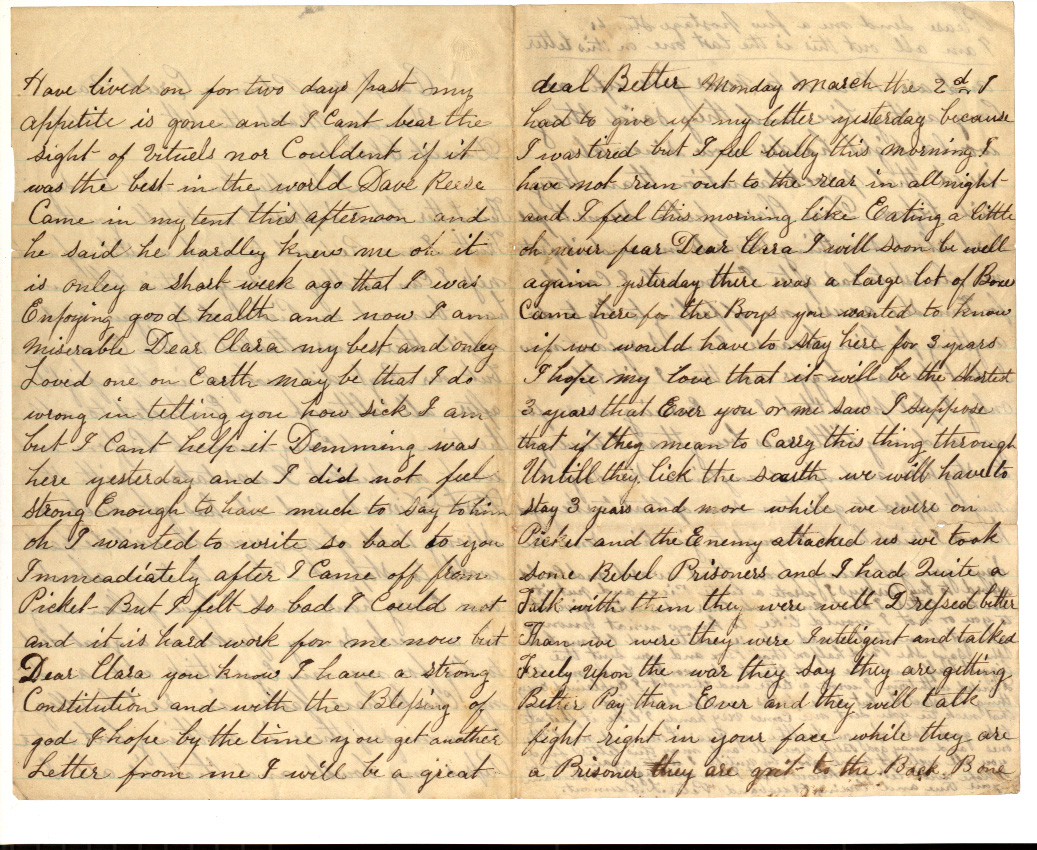 Have lived on for two days past my
appetite is gone and I Cant bear the
sight of vituels nor Couldent if it
was the best in the world Dave Reese
Came in my tent this afternoon and
he said he hardley knew me oh it
is onley a short week ago that I was
Enjoying good health and now I am
miserable Dear Clara my best and onley
Loved one on Earth may be that I do
wrong in telling you how sick I am
but I Cant help it Demming was
here yesterday and I did not feel
strong Enough to have much to say to him
oh I wanted to write so bad to you
Immeadiately after I Came off from
Picket But I felt so bad I Could not
and it is hard work for me now but
Dear Clara you know I have a strong
Constitution and with the Blessing of
god I hope by the time you get another
Letter from me I will be a great
deal Better Monday March the 2d I
had to give up my letter yesterday because
I was tired but I feel bully this morning I
have not run out to the rear in all night
and I feel this morning like Eating a little
oh never fear Dear Clara I will soon be well
again yesterday there was a large lot of Boxes
Came here for the Boys you wanted to know
if we would have to stay here for 3 years
I hope my love that it will be the shortest
3 years that Ever you or me saw I suppose
that if they mean to Carry this thing through
Untill they lick the south we will have to
stay 3 years and more while we were on
Picket and the Enemy attacked us we took
some Rebel Prisoners and I had Quite a
Talk with them they were well Dressed better
Than we were they were Inteligent and talked
Freely Upon the war they say they are getting
Better Pay than Ever and they will talk
fight right in your face while they are
a Prisoner they are grit to the Back Bone